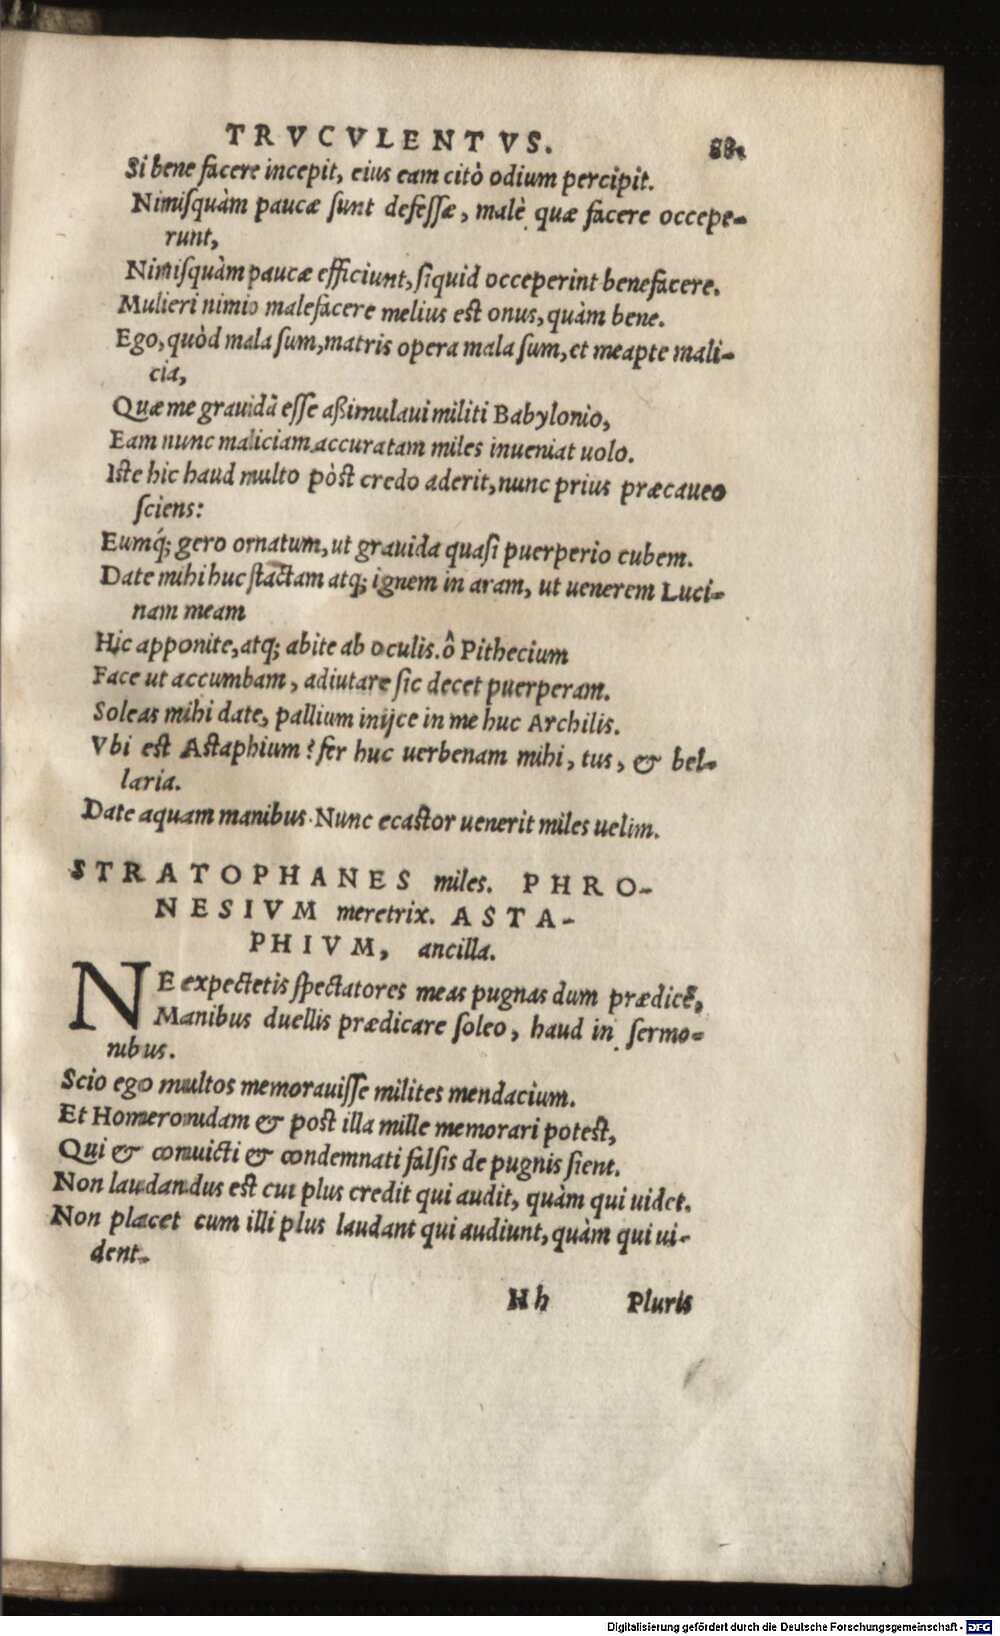 TRVCVLENTVS. 88.
Si bene facere incepit, eius eam citò odium percipit.
Nimisquàm paucæ sunt defessæ, malè quæ facere occepe-
runt,
Nimisquàm paucæ efficiunt, siquid occeperint benefacere.
Mulieri nimio malefacere melius est onus, quàm bene.
Ego, quòd mala sum, matris opera mala sum, et meapte mali-
cia,
Quæ me grauidã esse aßimulaui militi Babylonio,
Eam nunc maliciam accuratam miles inueniat uolo.
Iste hic haud multo pòst credo aderit, nunc prius præcaueo
sciens:
Eumq́; gero ornatum, ut grauida quasi puerperio cubem.
Date mihi huc stactam atq; ignem in aram, ut uenerem Luci-
nam meam
Hic apponite, atq; abite ab oculis. ô Pithecium
Face ut accumbam, adiutare sic decet puerperam.
Soleas mihi date, pallium inijce in me huc Archilis.
Vbi est Astaphium? fer huc uerbenam mihi, tus, & bel-
laria.
Date aquam manibus. Nunc ecastor uenerit miles uelim.
STRATOPHANES miles. PHRO-
NESIVM meretrix. ASTA-
PHIVM, ancilla.
NE expectetis spectatores meas pugnas dum prædicẽ,
Manibus duellis prædicare soleo, haud in sermo-
nibus.
Scio ego multos memorauisse milites mendacium.
Et Homeronidam & post illa mille memorari potest,
Qui & conuicti & condemnati falsis de pugnis sient.
Non laudandus est cui plus credit qui audit, quàm qui uidet.
Non placet cum illi plus laudant qui audiunt, quàm qui ui-
dent.
Hh Pluris
Digitalisierung gefördert durch die Deutsche Forschungsgemeinschaft - DFG